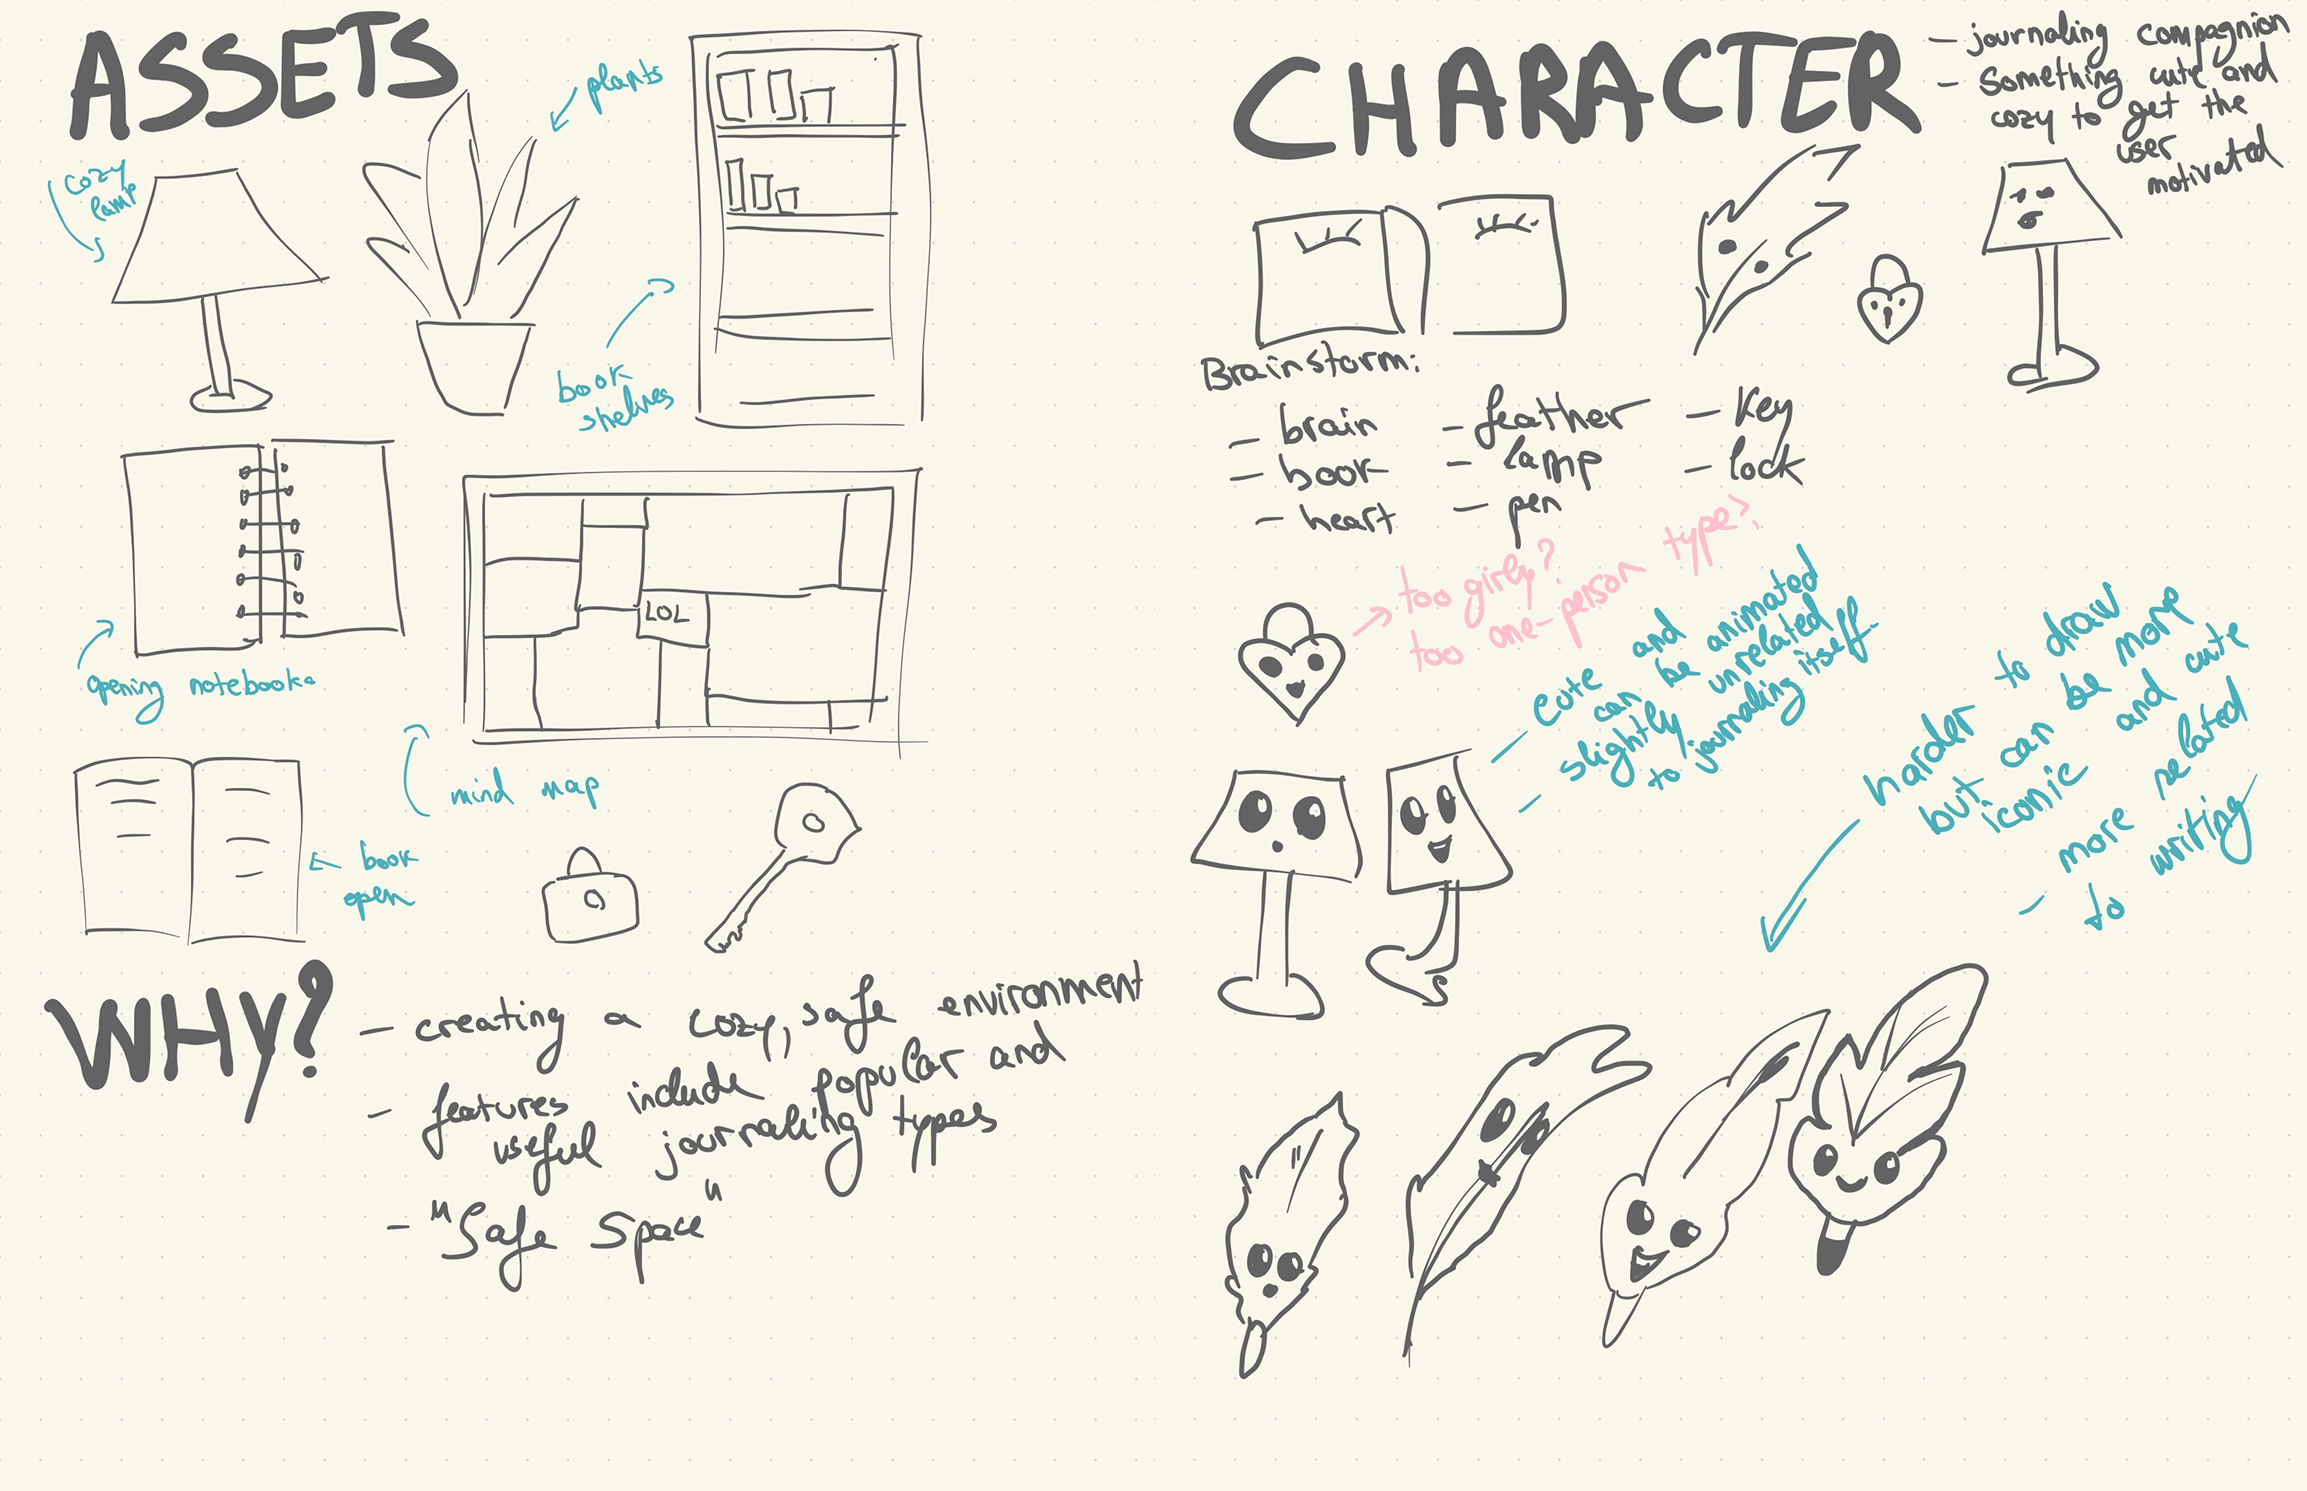 ASSETS
cozy
lamp
plants
book
shelves
opening notebook
LOL
mind map
book
open
WHY?
- creating a cozy, safe environment
- features include popular and
useful journaling types
- "Safe Space"
CHARACTER
- journaling compagnion
- something cute and
cozy to get the
user
motivated
Brainstorm:
- brain
- book
- heart
- feather
- lamp
- pen
- key
- lock
too girly?
too one-person type?
- cute and
can be animated
- slightly unrelated
to journaling itself
harder to draw
but can be more
iconic and cute
- more related
to writing